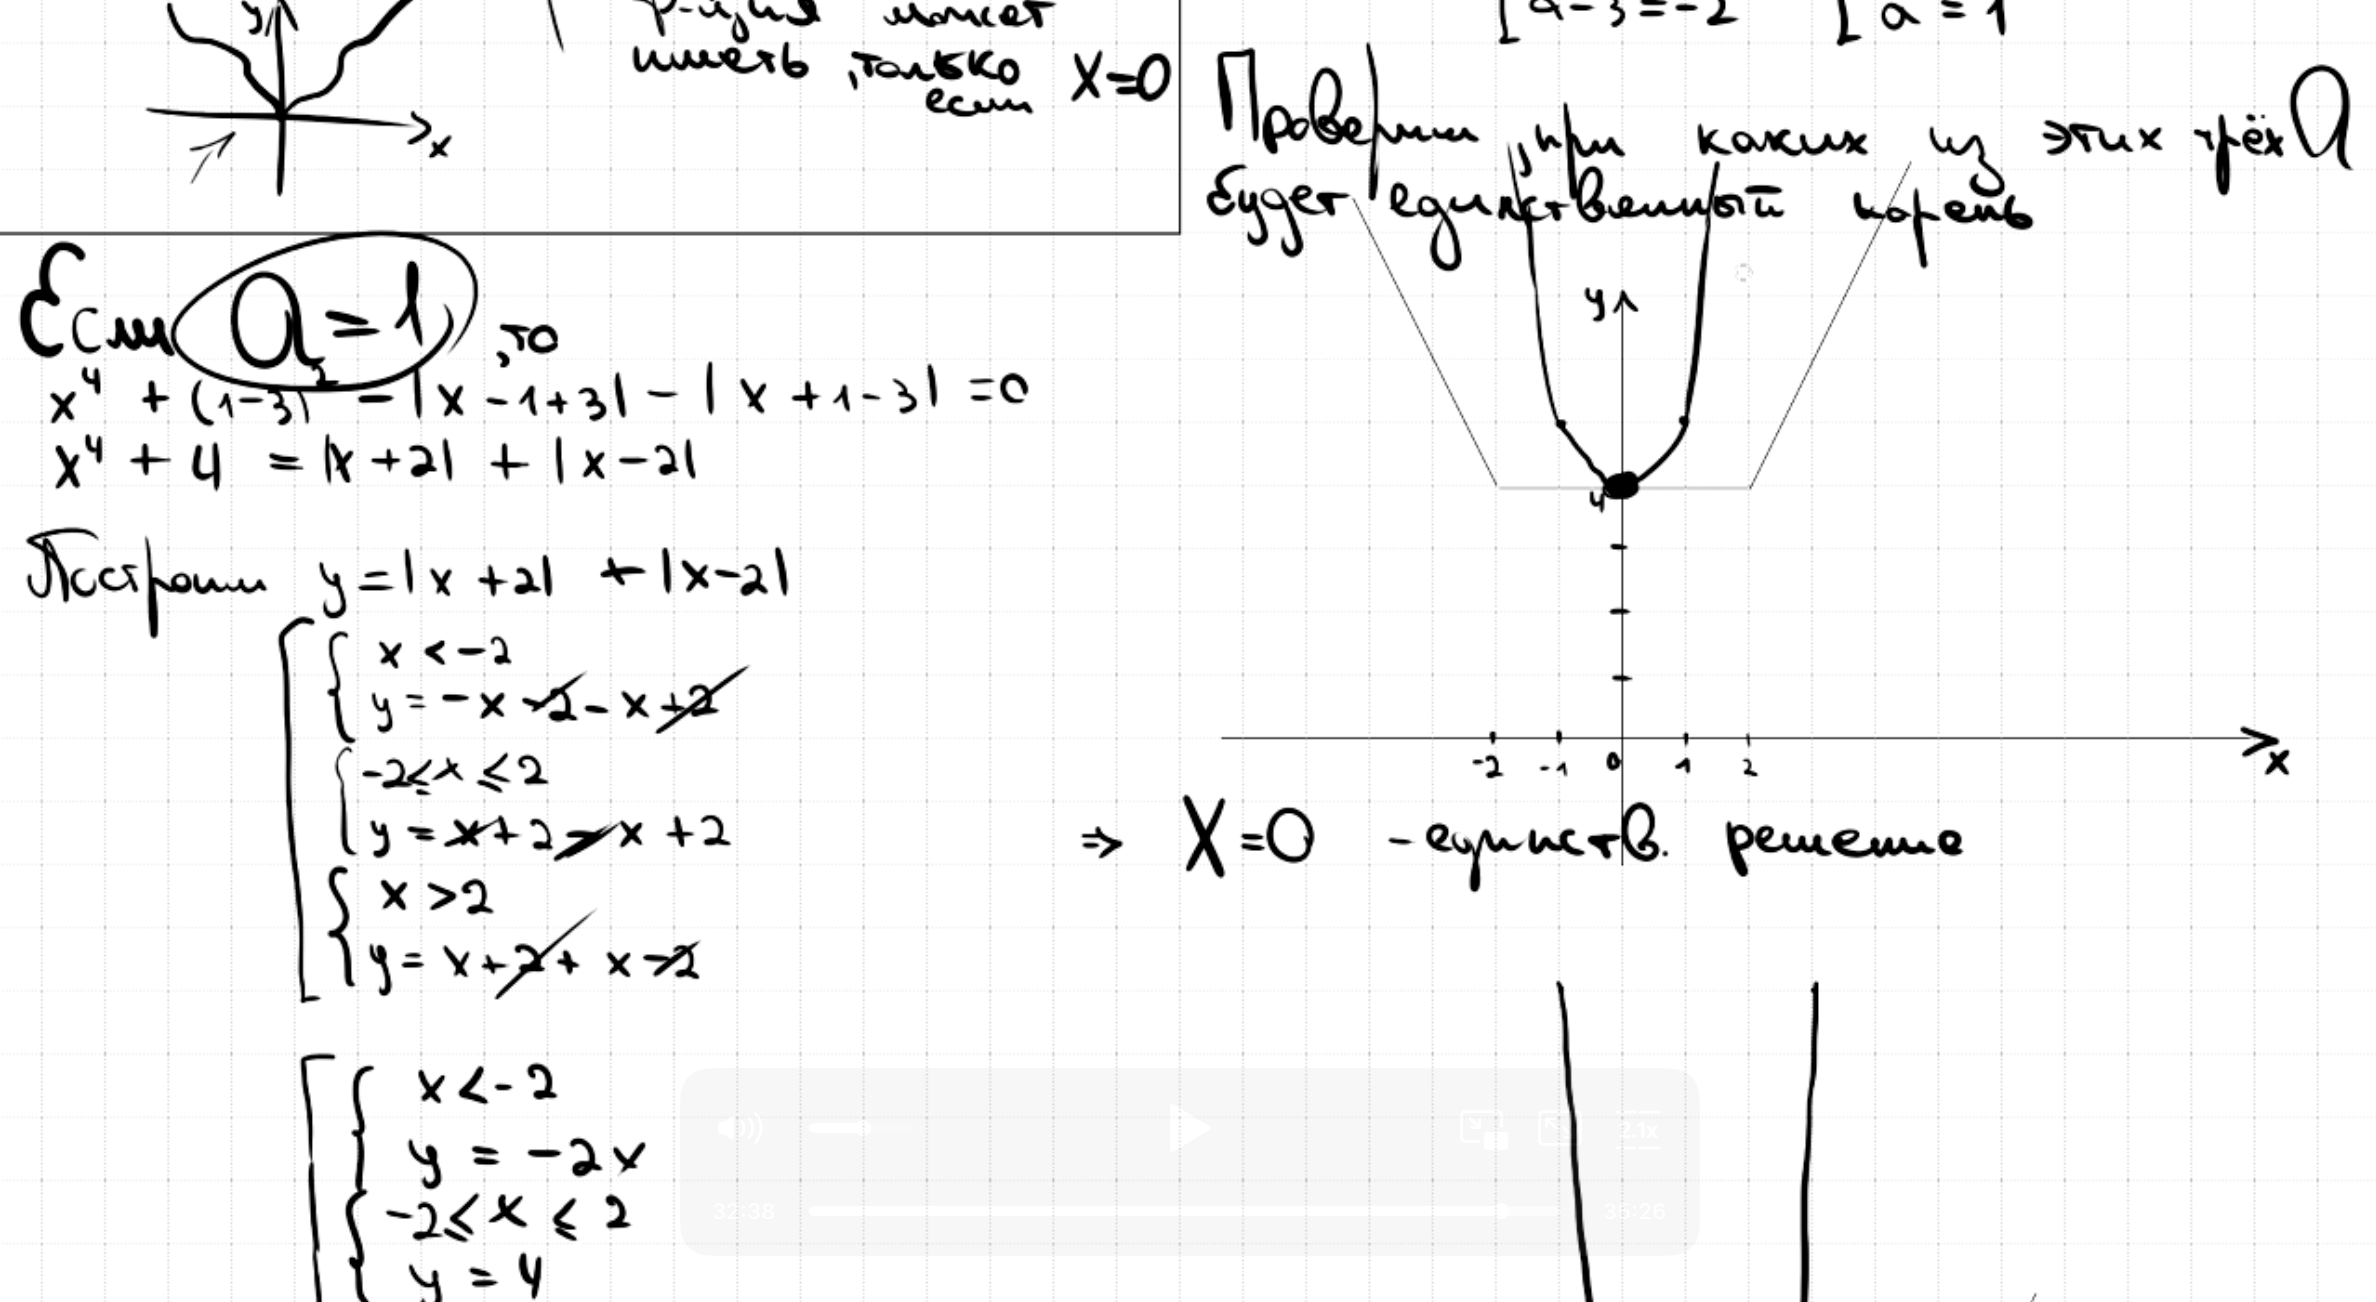 y
x
ф-иция может
иметь, только
если x=0
[ a-3=-2 [ a = 1
Проверим, при каких из этих трёх a
будет единственный корень
Если a=1, то
x⁴ + (1-3)² - |x-1+3| - |x+1-3| = 0
x⁴ + 4 = |x+2| + |x-2|
Построим y=|x+2| + |x-2|
x < -2
y = -x-2-x+2
-2≤x≤2
y = x+2-x+2
x >2
y = x+2+x-2
x<-2
y = -2x
-2≤x≤2
y = 4
y
4
-2 -1 0 1 2
x
⇒ X=0 - единств. решение
2.1x
32:38
35:26